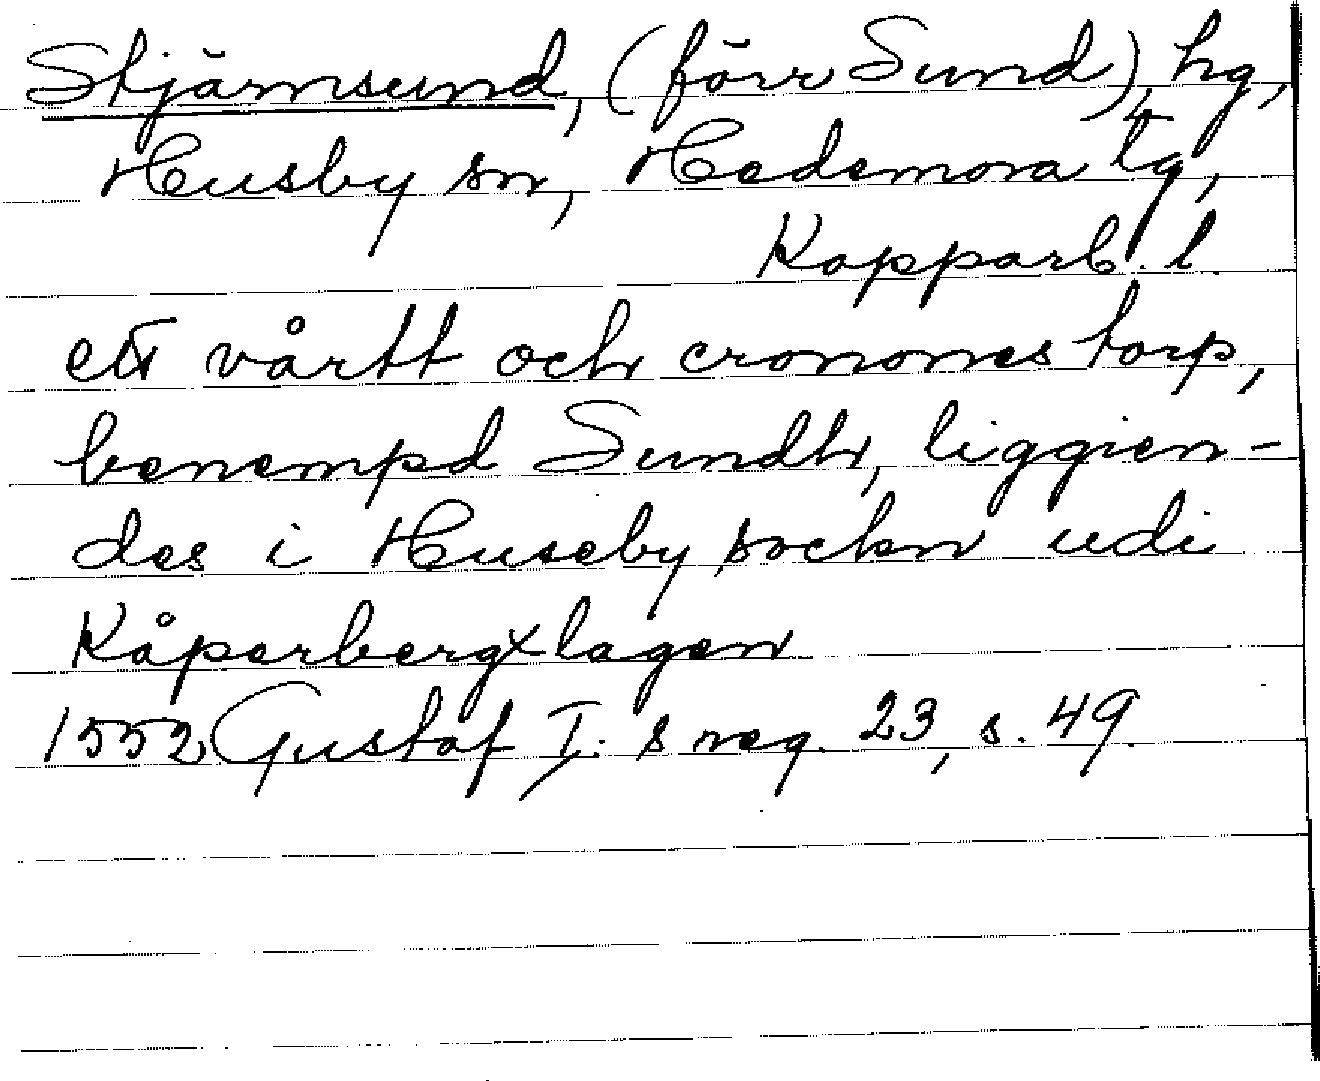 Stjärnsund, (förr Sund), hg,
Husby sn, Hedemora tg,
Kopparb. l.
ett vårtt och cronones torp,
benempd Sundh, liggien-
des i Huseby sockn udi
Kåperbergx lagen
1552 Gustaf I:s reg. 23, s. 49